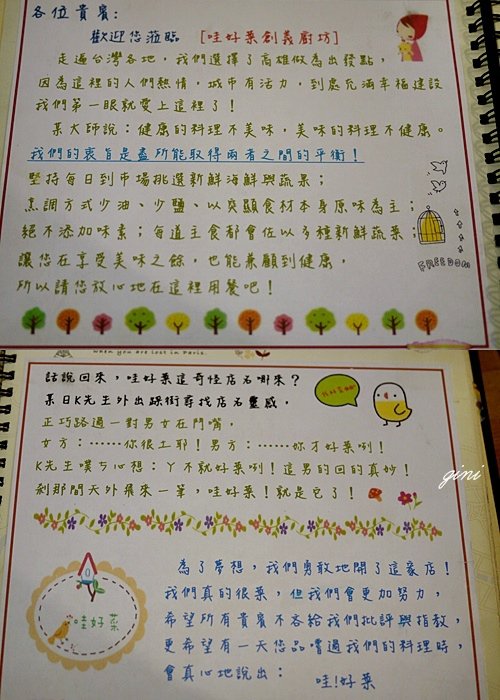 各位貴賓:
歡迎您蒞臨 [哇好菜創義廚坊]
走過台灣各地，我們選擇了高雄做為出發點，
因為這裡的人們熱情，城市有活力，到處充滿幸福建設
我們第一眼就愛上這裡了！
某大師說：健康的料理不美味，美味的料理不健康。
我們的衷旨是盡所能取得兩者之間的平衡！
堅持每日到市場挑選新鮮海鮮與蔬果；
烹調方式少油、少鹽、以突顯食材本身原味為主；
絕不添加味素；每道主食都會佐以多種新鮮蔬菜；
讓您在享受美味之餘，也能兼顧到健康，
所以請您放心地在這裡用餐吧！
FREEDOM
when you are lost in Paris.
話說回來，哇好菜這奇怪店名哪來？
某日K先生外出踩街尋找店名靈感，
正巧路過一對男女在鬥嘴，
女方：……你很ㄥ耶！男方：……妳才好菜咧！
K先生噗ㄘ心想：ㄚ不就好菜咧！這男的回的真妙！
剎那間天外飛來一筆，哇好菜！就是它了！
gini
為了夢想，我們勇敢地開了這家店！
我們真的很菜，但我們會更加努力，
希望所有貴賓不吝給我們批評與指教，
更希望有一天您品嚐過我們的料理時，
會真心地說出： 哇!好菜
哇好菜